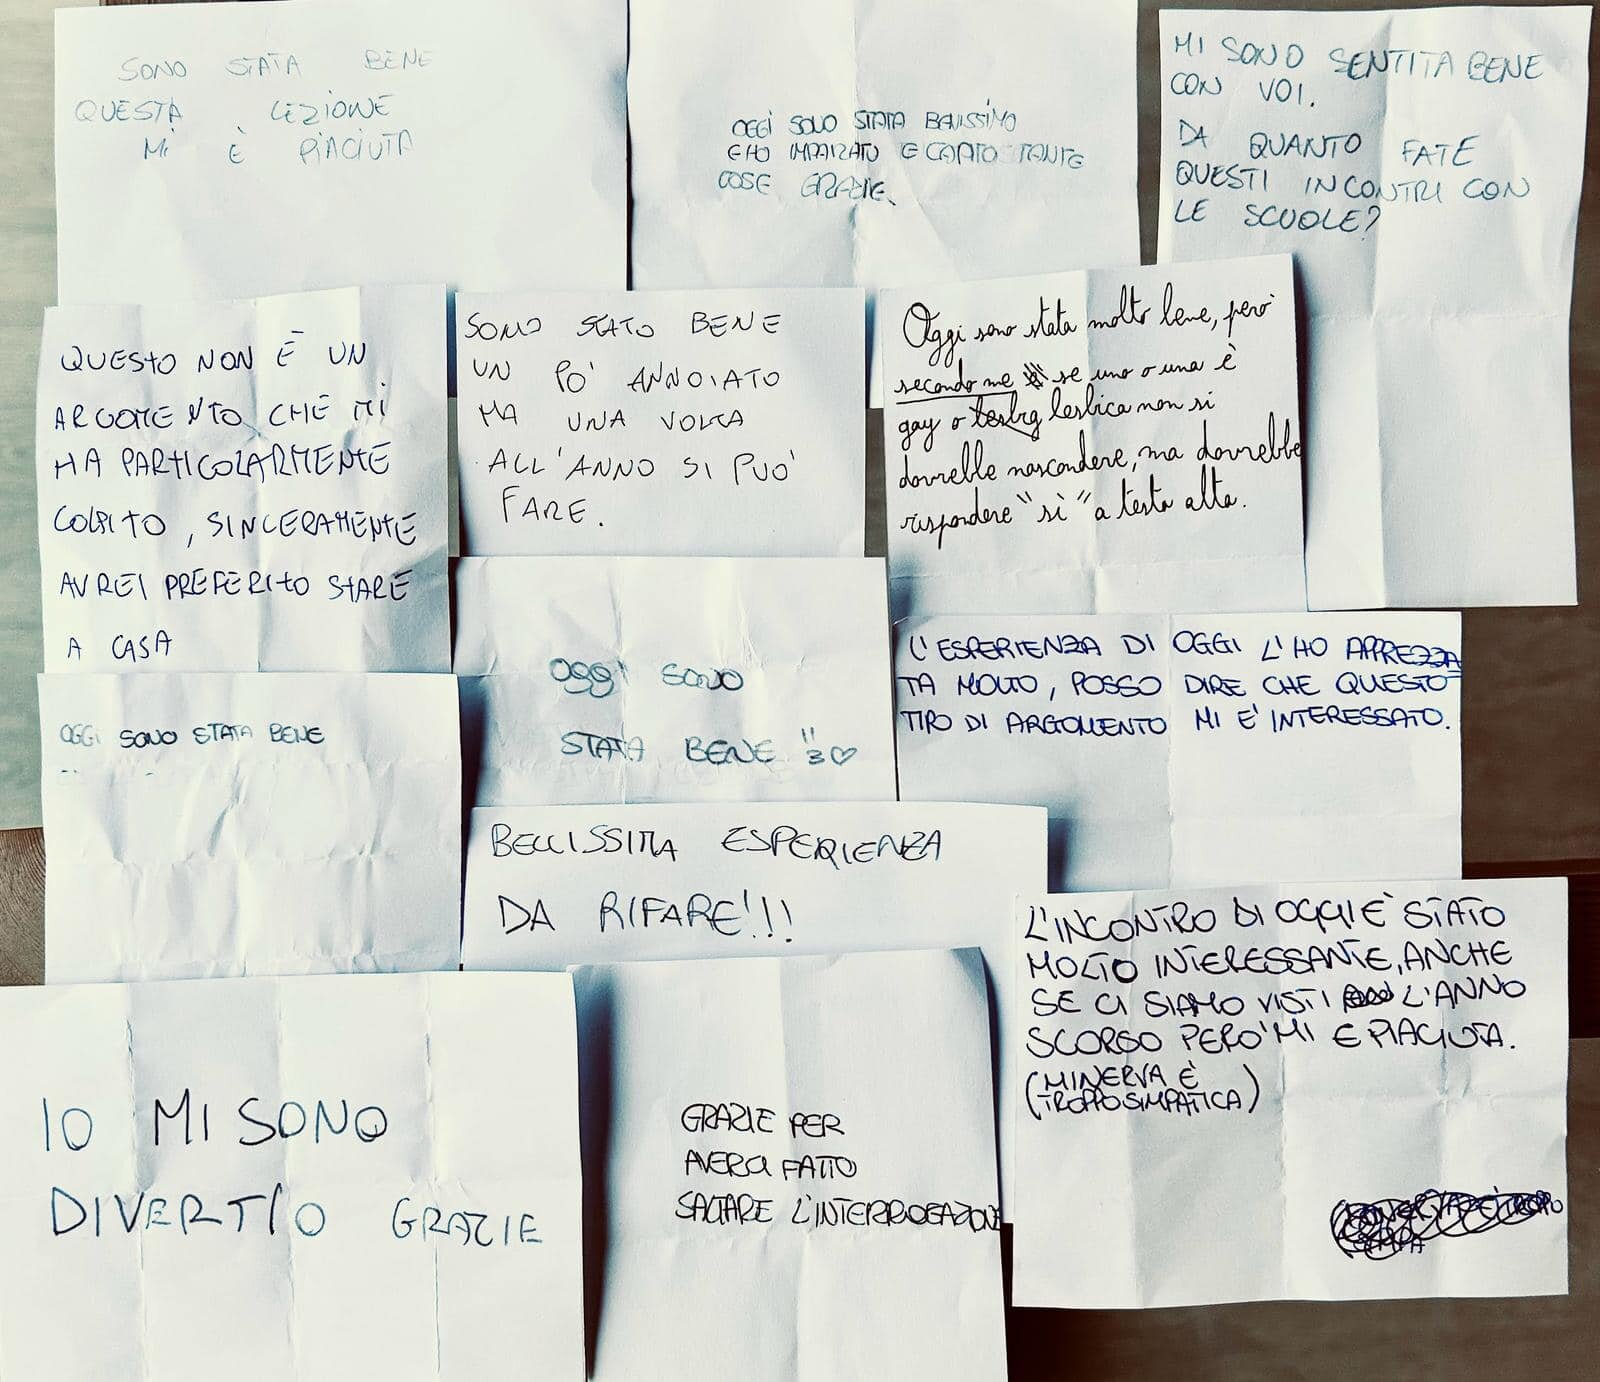 SONO STATA BENE
QUESTA LEZIONE
Mi È PIACIUTA
OGGÌ SONO STATA BENISSIMO
E HO IMPARATO E CAPITO TANTE
COSE GRAZIE.
MI SONO SENTITA BENE
CON VOI.
DA QUANTO FATE
QUESTI INCONTRI CON
LE SCUOLE?
QUESTO NON È UN
ARGOMENTO CHE MI
HA PARTICOLARMENTE
COLPITO, SINCERAMENTE
AVREI PREFERITO STARE
A CASA
SONO STATO BENE
UN PO' ANNOIATO
MA UNA VOLTA
ALL'ANNO SI PUO'
FARE.
Oggi sono stata molto bene, però
secondo me se uno o una è
gay o lesbica non si
dovrebbe nascondere, ma dovrebbe
rispondere "sì" a testa alta.
OGGI SONO STATA BENE
Oggi SONO
STATA BENE !! 3♡
L'ESPERIENZA DI OGGI L'HO APPREZZA
TA MOLTO, POSSO DIRE CHE QUESTO
TIPO DI ARGOMENTO MI E' INTERESSATO.
BELLISSIMA ESPERIENZA
DA RIFARE!!!
L'INCONTRO DI OGGI E' STATO
MOLTO INTERESSANTE, ANCHE
SE CI SIAMO VISTI L'ANNO
SCORSO PERO' MI E PIACIUTA.
(MINERVA È
TROPPO SIMPATICA)
IO MI SONO
DIVERTIO GRAZIE
GRAZIE PER
AVERCI FATTO
SALTARE L'INTERROGAZIONE